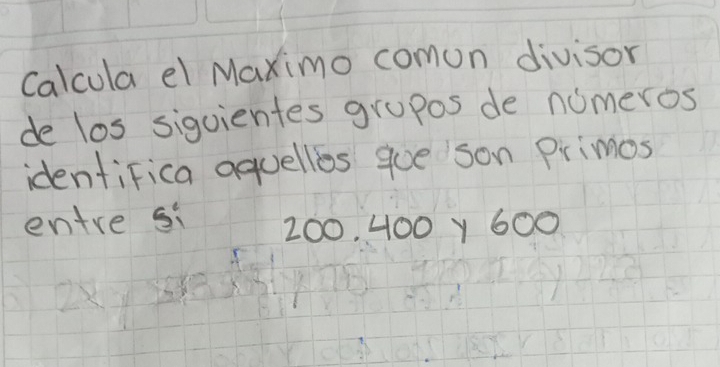 Calcula el Maximo comun divisor
de los siguientes grupos de números
identifica aquellos que son primos
entre si 200.400 y 600